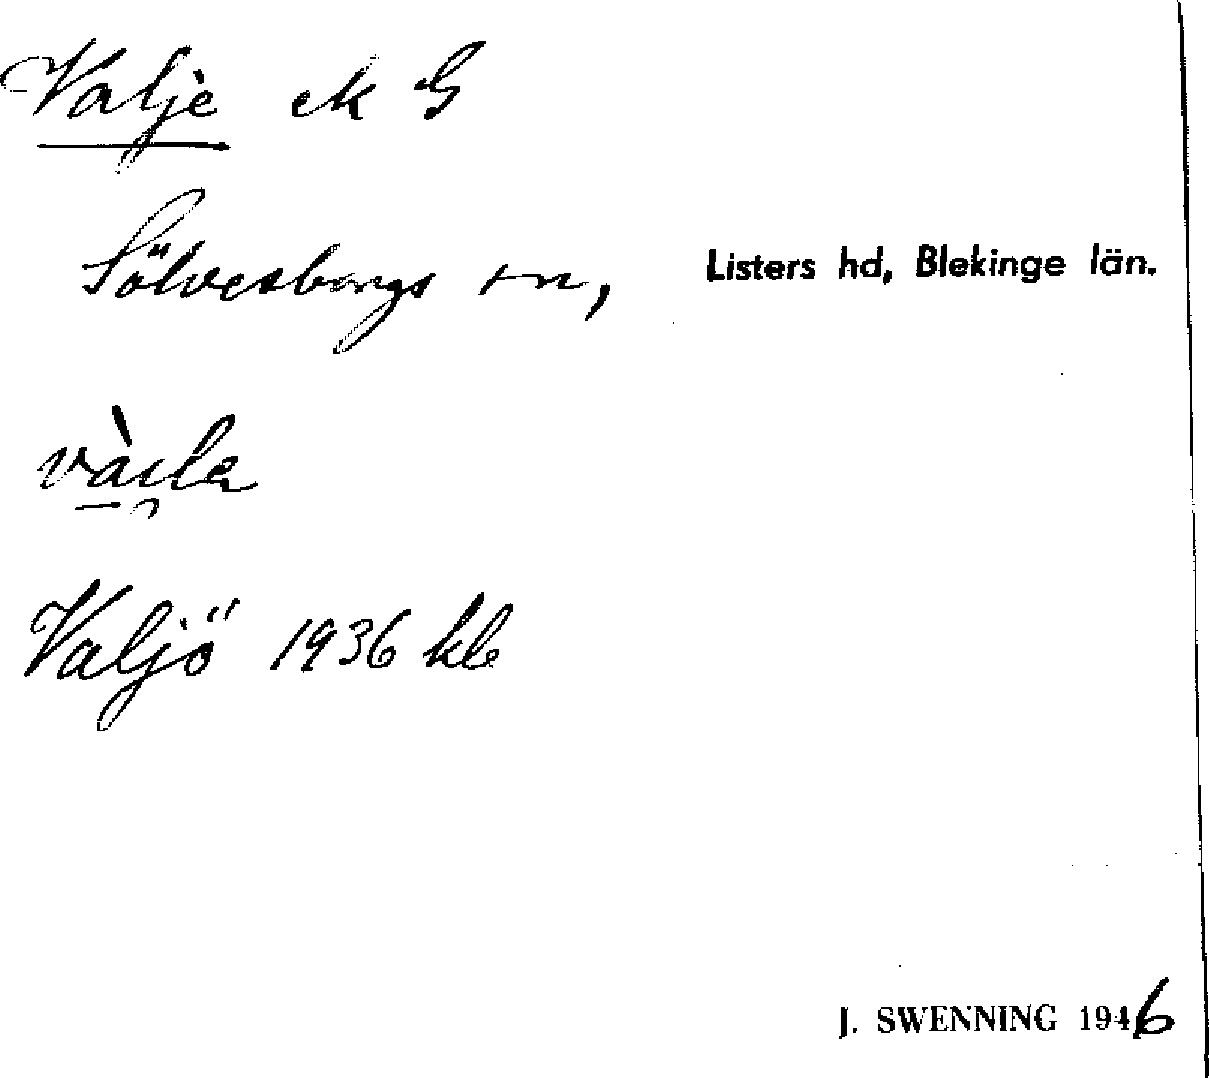 Valje ek G
Sölvesborgs sn, Listers hd, Blekinge län.
Valjö 1936 kb
J. SWENNING 1946